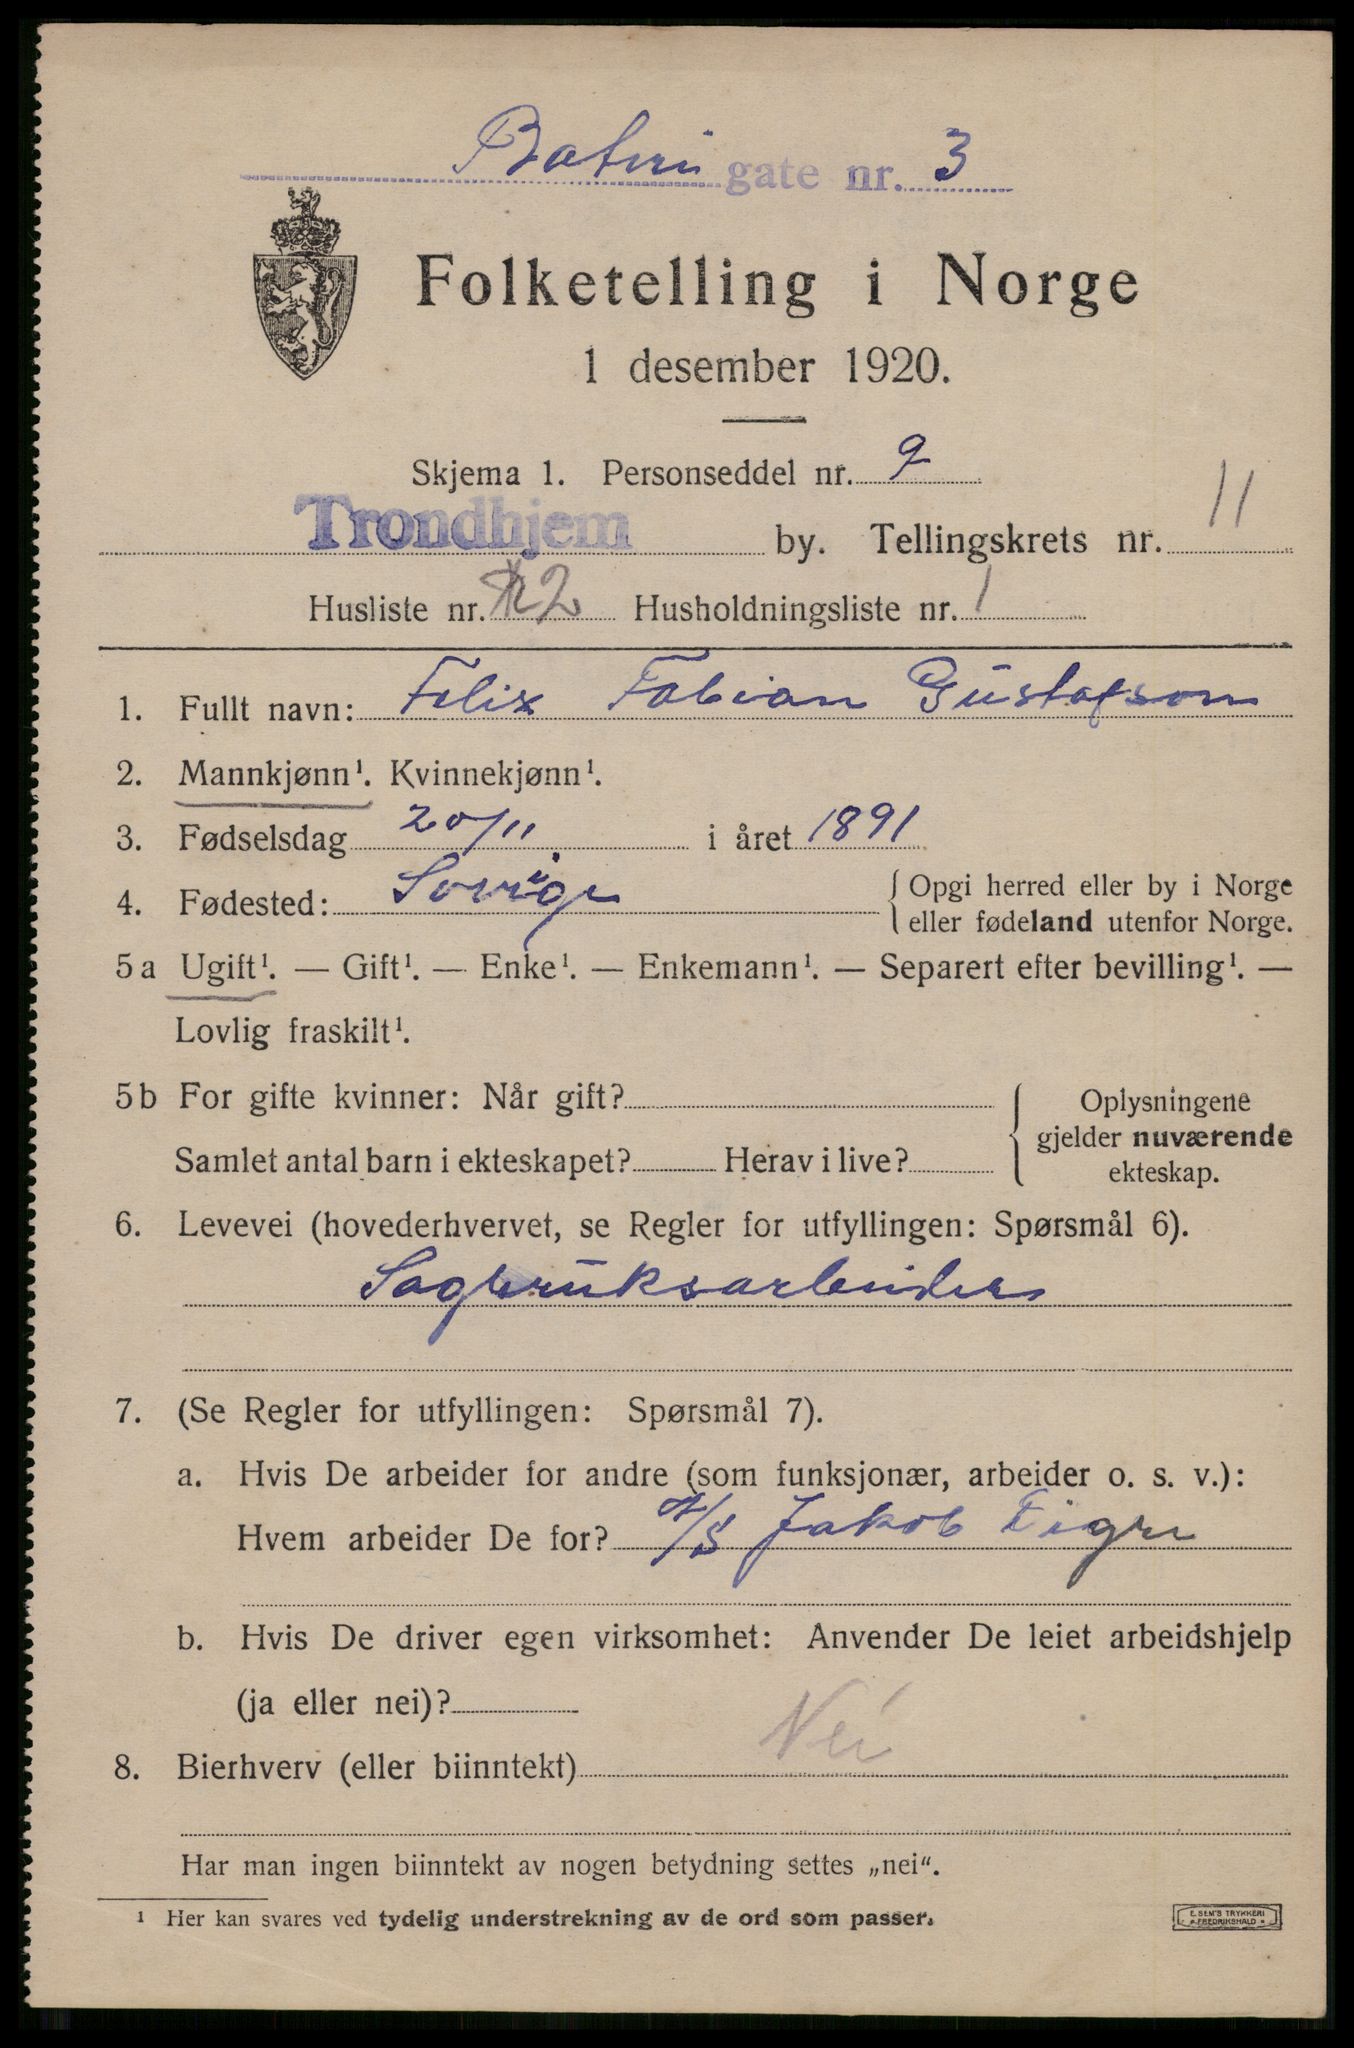 Bateri gate nr. 3
Folketelling i Norge
1 desember 1920.
Skjema 1. Personseddel nr. 9
Trondhjem by. Tellingskrets nr. 11
Husliste nr. 2 Husholdningsliste nr. 1
1. Fullt navn: Felix Fabian Gustafson
2. Mannkjønn¹. Kvinnekjønn¹.
3. Fødselsdag 20/11 i året 1891
4. Fødested: Sverige { Opgi herred eller by i Norge
eller fødeland utenfor Norge.
5a Ugift¹. — Gift¹. — Enke¹. — Enkemann¹. — Separert efter bevilling¹. —
Lovlig fraskilt¹.
5b For gifte kvinner: Når gift? { Oplysningene
gjelder nuværende
Samlet antal barn i ekteskapet? Herav i live?
ekteskap.
6. Levevei (hovederhvervet, se Regler for utfyllingen: Spørsmål 6).
Sagbruksarbeider
7. (Se Regler for utfyllingen: Spørsmål 7).
a. Hvis De arbeider for andre (som funksjonær, arbeider o. s. v.):
Hvem arbeider De for? A/S Jakob Digre
b. Hvis De driver egen virksomhet: Anvender De leiet arbeidshjelp
(ja eller nei)?
8. Bierhverv (eller biinntekt) Nei
Har man ingen biinntekt av nogen betydning settes „nei“.
¹ Her kan svares ved tydelig understrekning av de ord som passer.
E. SEM'S TRYKKERI
FREDRIKSHALD